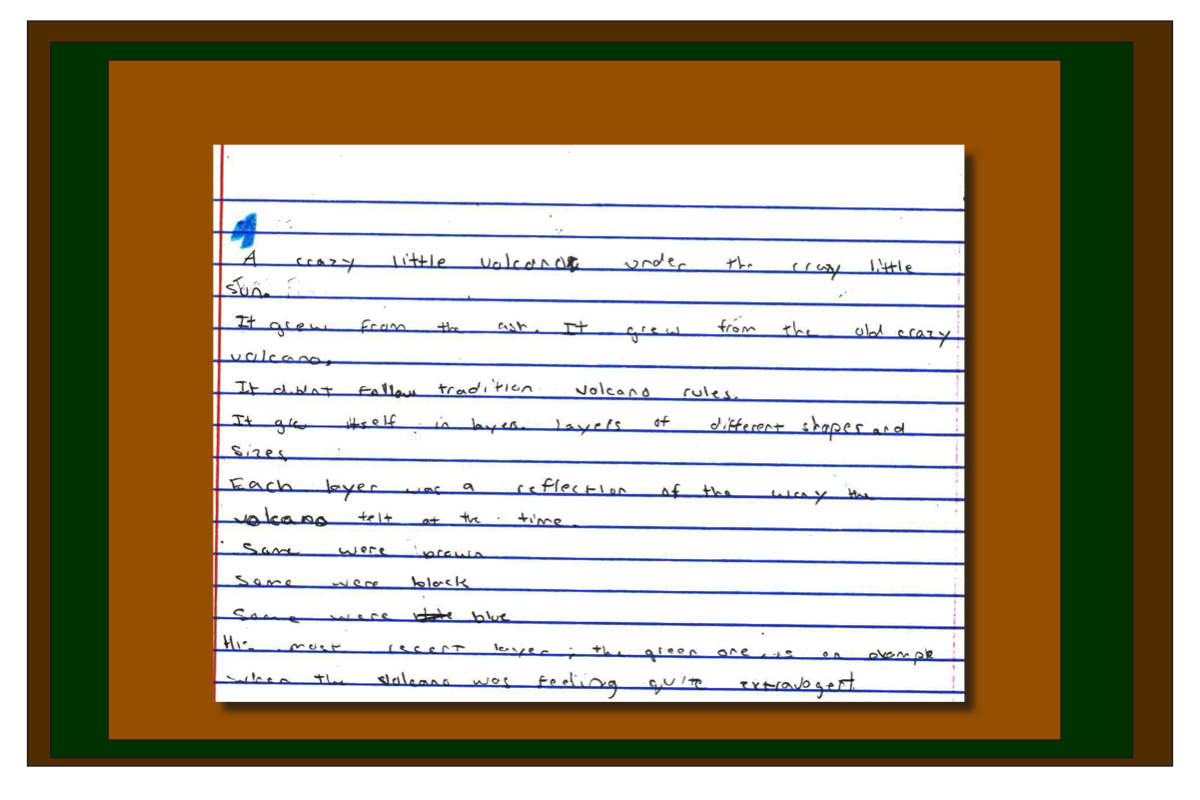 A crazy little volcano under the crazy little
sun.
It grew from the ash. It grew from the old crazy
volcano.
It didnt follow tradition volcano rules.
It grew itself in layers. layers of different shapes and
sizes
Each layer was a reflection of the way the
volcano felt at the time.
Some were brown
Some were black
Some were blue
His most recent layer, the green one, is an example
when the volcano was feeling quite extravagent